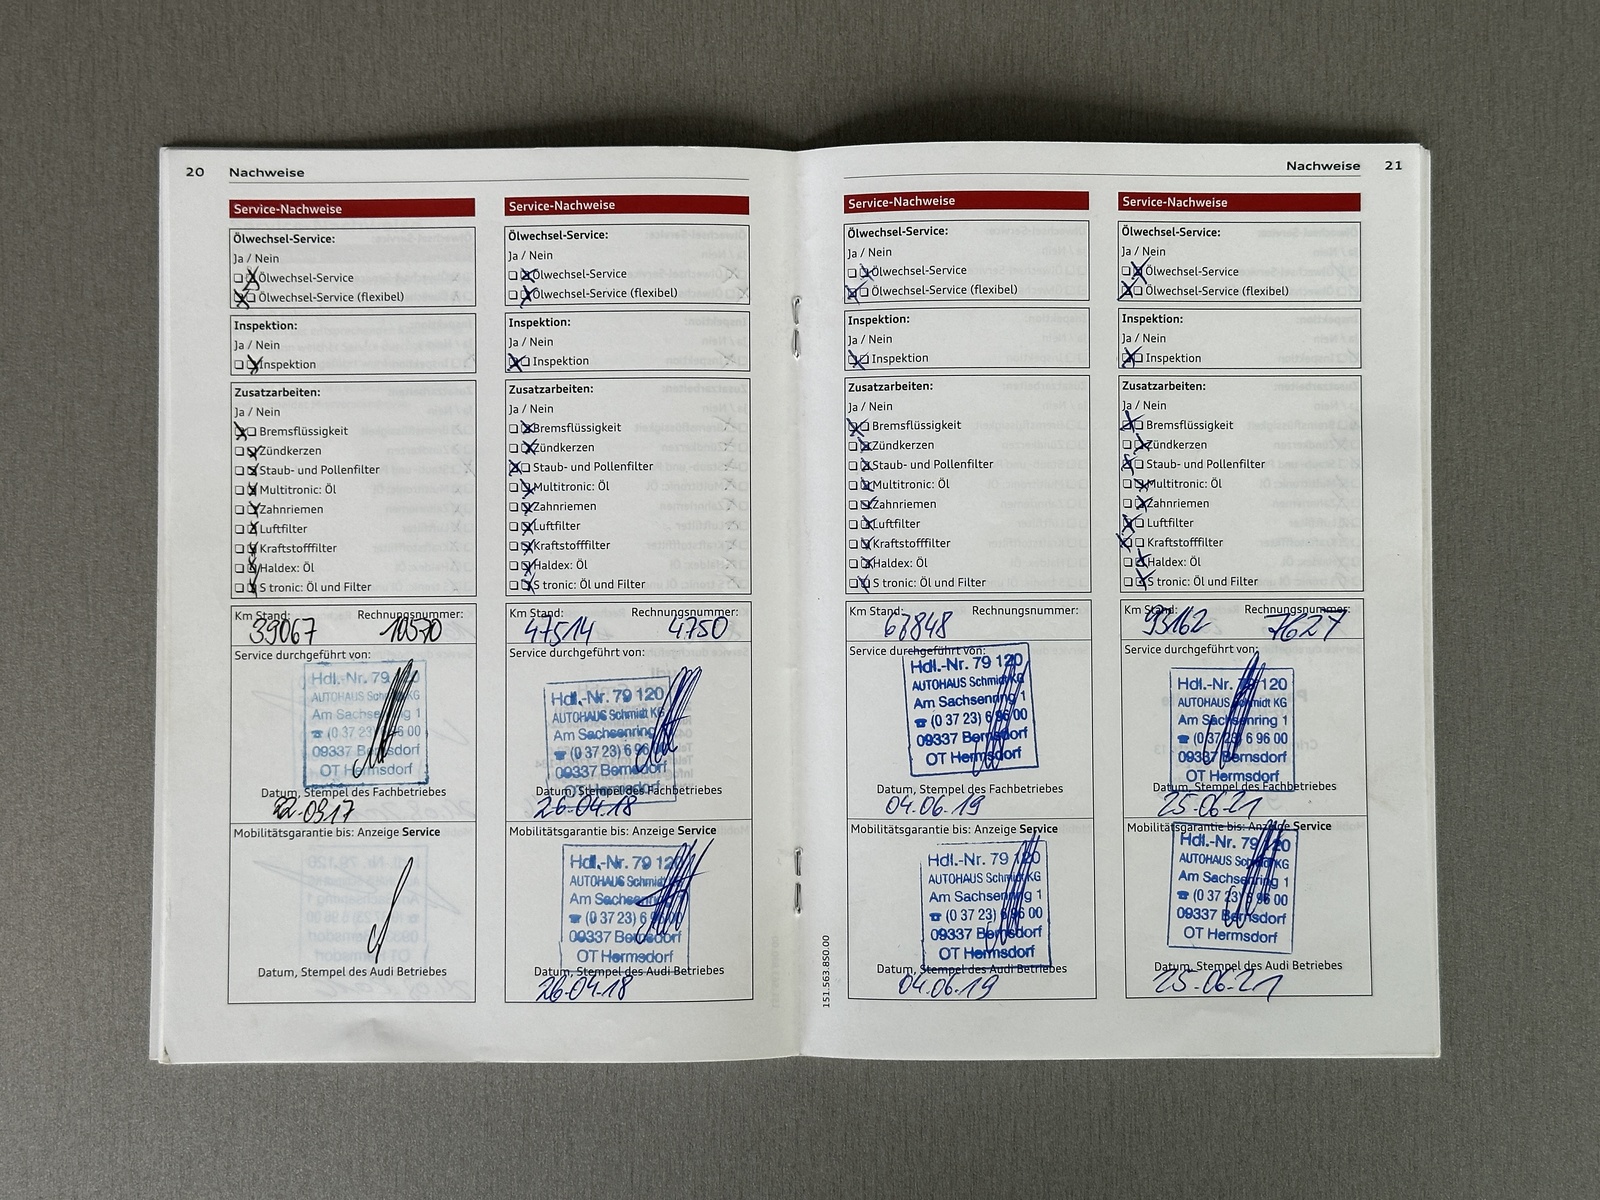 20 Nachweise
Service-Nachweise
Ölwechsel-Service:
Ja / Nein
Ölwechsel-Service
Ölwechsel-Service (flexibel)
Inspektion:
Ja / Nein
Inspektion
Zusatzarbeiten:
Ja / Nein
Bremsflüssigkeit
Zündkerzen
Staub- und Pollenfilter
Multitronic: Öl
Zahnriemen
Luftfilter
Kraftstofffilter
Haldex: Öl
S tronic: Öl und Filter
Km Stand: Rechnungsnummer:
39067 10570
Service durchgeführt von:
Hdl.-Nr. 79 120
AUTOHAUS Schmidt KG
Am Sachsenring 1
☎ (0 37 23) 6 96 00
09337 Bernsdorf
OT Hermsdorf
Datum, Stempel des Fachbetriebes
.0917
Mobilitätsgarantie bis: Anzeige Service
Datum, Stempel des Audi Betriebes
Service-Nachweise
Ölwechsel-Service:
Ja / Nein
Ölwechsel-Service
Ölwechsel-Service (flexibel)
Inspektion:
Ja / Nein
Inspektion
Zusatzarbeiten:
Ja / Nein
Bremsflüssigkeit
Zündkerzen
Staub- und Pollenfilter
Multitronic: Öl
Zahnriemen
Luftfilter
Kraftstofffilter
Haldex: Öl
S tronic: Öl und Filter
Km Stand: Rechnungsnummer:
47514 4750
Service durchgeführt von:
Hdl.-Nr. 79 120
AUTOHAUS Schmidt KG
Am Sachsenring
☎ (0 37 23) 6 96 00
09337 Bernsdorf
OT Hermsdorf
Datum, Stempel des Fachbetriebes
26.04.18
Mobilitätsgarantie bis: Anzeige Service
Hdl.-Nr. 79 120
AUTOHAUS Schmidt KG
Am Sachsenring 1
☎ (0 37 23) 6 96 00
09337 Bernsdorf
OT Hermsdorf
Datum, Stempel des Audi Betriebes
26.04.18
Nachweise 21
Service-Nachweise
Ölwechsel-Service:
Ja / Nein
Ölwechsel-Service
Ölwechsel-Service (flexibel)
Inspektion:
Ja / Nein
Inspektion
Zusatzarbeiten:
Ja / Nein
Bremsflüssigkeit
Zündkerzen
Staub- und Pollenfilter
Multitronic: Öl
Zahnriemen
Luftfilter
Kraftstofffilter
Haldex: Öl
S tronic: Öl und Filter
Km Stand: Rechnungsnummer:
67848
Service durchgeführt von:
Hdl.-Nr. 79 120
AUTOHAUS Schmidt KG
Am Sachsenring 1
☎ (0 37 23) 6 96 00
09337 Bernsdorf
OT Hermsdorf
Datum, Stempel des Fachbetriebes
04.06.19
Mobilitätsgarantie bis: Anzeige Service
Hdl.-Nr. 79 120
AUTOHAUS Schmidt KG
Am Sachsenring 1
☎ (0 37 23) 6 96 00
09337 Bernsdorf
OT Hermsdorf
Datum, Stempel des Audi Betriebes
04.06.19
151.563.850.00
Service-Nachweise
Ölwechsel-Service:
Ja / Nein
Ölwechsel-Service
Ölwechsel-Service (flexibel)
Inspektion:
Ja / Nein
Inspektion
Zusatzarbeiten:
Ja / Nein
Bremsflüssigkeit
Zündkerzen
Staub- und Pollenfilter
Multitronic: Öl
Zahnriemen
Luftfilter
Kraftstofffilter
Haldex: Öl
S tronic: Öl und Filter
Km Stand: Rechnungsnummer:
93162 7627
Service durchgeführt von:
Hdl.-Nr. 79 120
AUTOHAUS Schmidt KG
Am Sachsenring 1
☎ (0 37 23) 6 96 00
09337 Bernsdorf
OT Hermsdorf
Datum, Stempel des Fachbetriebes
25.06.21
Mobilitätsgarantie bis: Anzeige Service
Hdl.-Nr. 79 120
AUTOHAUS Schmidt KG
Am Sachsenring 1
☎ (0 37 23) 6 96 00
09337 Bernsdorf
OT Hermsdorf
Datum, Stempel des Audi Betriebes
25.06.21